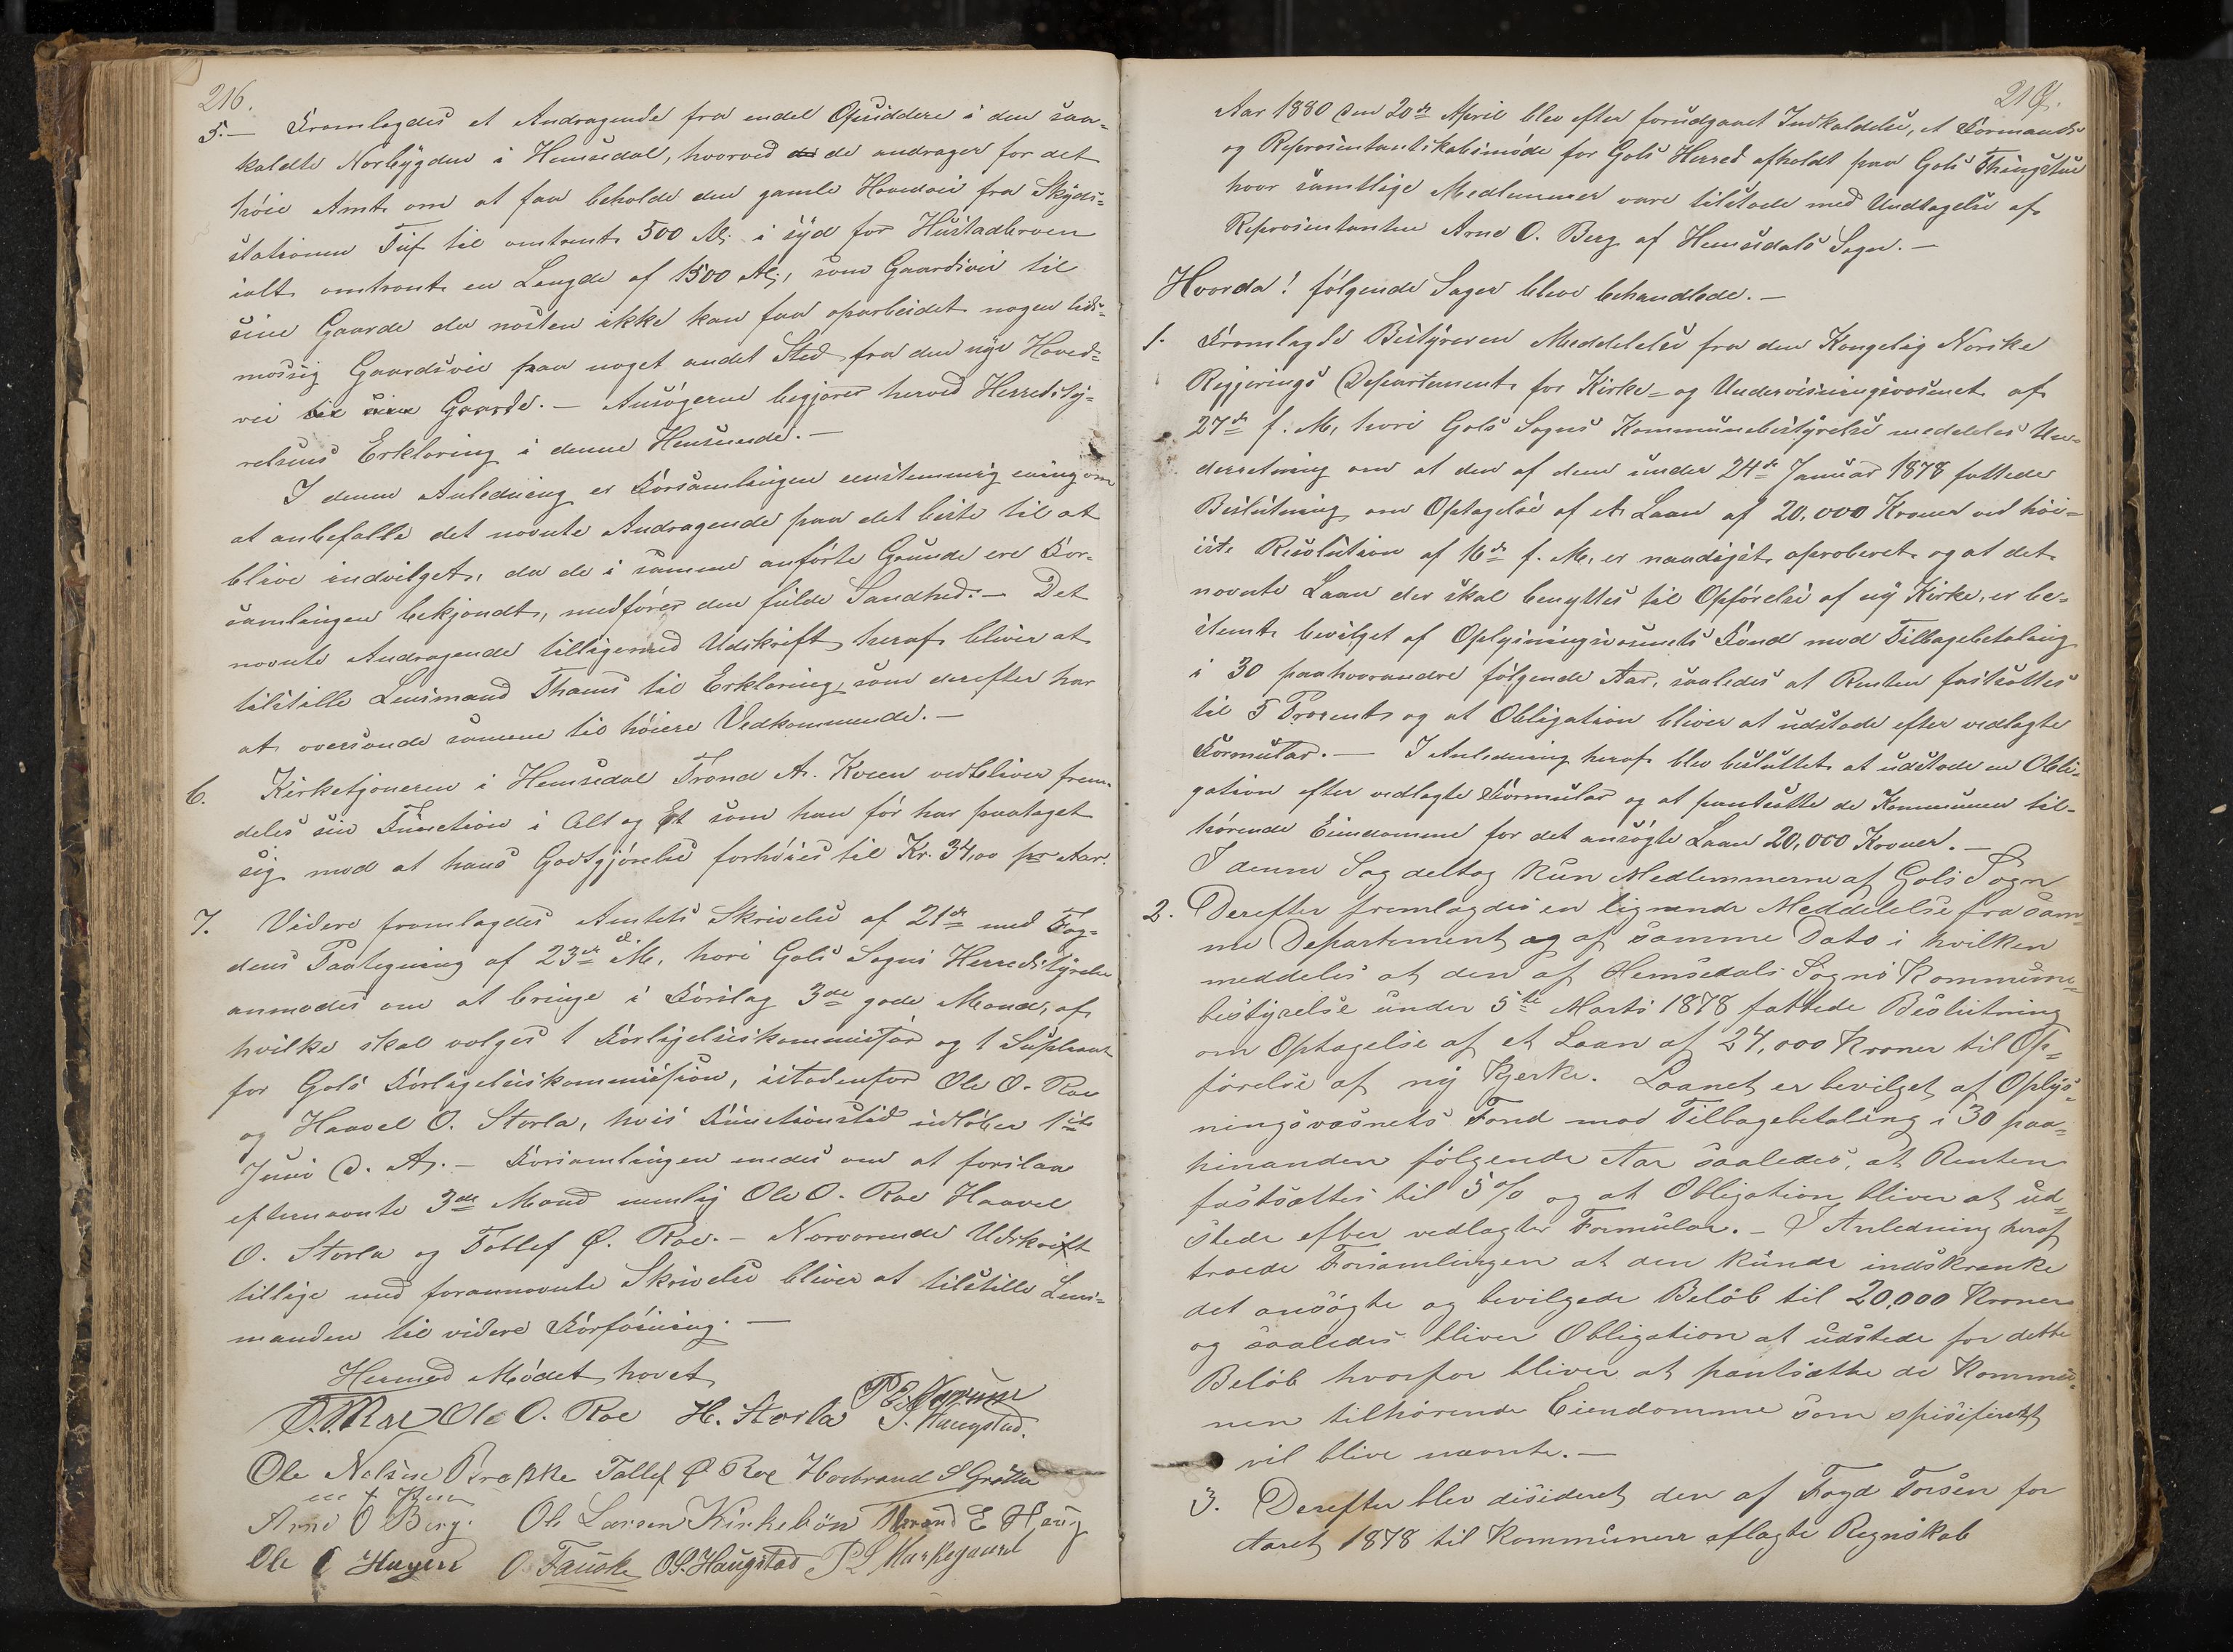 216.
5.— Fremlagdes et Andragende fra endel Opsiddere i den saa-
kaldte Norbygden i Hemsedal, hvorved de de andrager for det
høie Amt om at faa beholde den gamle Hovedvei fra Skyds-
stationen Tuf til omtrent 500 Al. i syd for Hustadbroen
ialt omtrent en Længde af 1500 Al., som Gaardsvei til
sine Gaarde da næsten ikke kan faa oparbeidet nogen lids-
mæssig Gaardsvei paa noget andet Sted fra den nye Hoved-
vei til sine Gaarde. — Ansøgerne begjærer herved Herredsty-
relsens Erklæring i denne Henseende. —
I denne Anledning er Forsamlingen enstemmig enig om
at anbefalle det nævnte Andragende paa det beste til at
blive indvilget, da de i samme anførte Grunde ere For-
samlingen bekjendt, medfører den fulde Sandhed. — Det
nævnte Andragende tilligemed Udskrift heraf bliver at
tilstille Lensmand Thams til Erklæring, som derefter har
at oversende samme til høiere Vedkommende. —
6. Kirketjeneren i Hemsedal Trond A. Koen vedbliver frem-
deles sin Function i Alt og Et som han før har paataget
sig mod at hans Godtgjørelse forhøies til Kr. 34,00 pr Aar.
7. Videre fremlagdes Amtets Skrivelse af 21de med Fog-
dens Paategning af 23de d. M., hvori Gols Sogns Herredstyrelse
anmodes om at bringe i Forslag 3de gode Mænd, af
hvilke skal vælges 1 Forligelseskommissær og 1 Supleant
for Gols Forligelseskommission, istedenfor Ole O. Roe
og Haavel O. Storla, hvis Functionstid udløber 1ste
Juni d. A. — Forsamlingen enedes om at foreslaa
efternævnte 3de Mænd nemlig Ole O. Roe Haavel
O. Storla og Tollef Ø. Roe. — Nærværende Udskrift
tillige med forannævnte Skrivelse bliver at tilstille Lens-
manden til videre Forføining. —
Hermed Mødet hævet
Ole O. Roe H. Storla T. Haugstad.
Ole Nelsen Brekke Tollef Ø Roe Herbrand S Grøtte
Arne O Berg. Ole Larsen Kirkebøn Thrond E Haug
Ole O Huyen O. Fauske O.S. Haugstad P L Markegaard
217.
Aar 1880 den 20de April blev efter forudgaaet Indkaldelse, et Formands-
og Repræsentantskabsmøde for Gols Herred afholdt paa Gols Thingstue
hvor samtlige Medlemmer vare tilstede med Undtagelse af
Repræsentanten Arne O. Berg af Hemsedals Sogn. —
Hvorda! følgende Sager bleve behandlede. —
1. Fremlagde Bestyreren Meddelelse fra den Kongelig Norske
Regjerings Departement for Kirke- og Undervisningsvæsenet af
27de f. M, hvori Gols Sogns Kommunebestyrelse meddeles Un-
derretning om at den af dem under 24de Januar 1878 fattede
Beslutning om Optagelse af et Laan af 20,000 Kroner ved høi-
iste Resolution af 16de f. M. er naadigst aproberet og at det
nævnte Laan der skal benyttes til Opførelse af ny Kirke, er be-
stemt bevilget af Oplysningsvæsenets Fond mod Tilbagebetaling
i 30 paahverandre følgende Aar, saaledes at Renten fastsættes
til 5 Procent og at Obligation bliver at udstæde efter vedlagte
Formular. — I Anledning heraf blev besluttet at udstæde en Obli-
gation efter vedlagte Formular og at pantsætte de Kommunen til-
hørende Eiendomme for det ansøgte Laan 20,000 Kroner. —
I denne Sag deltog kun Medlemmerne af Gols Sogn
2. Derefter fremlagdes en lignende Meddelelse fra sam-
me Departement og af samme Dato i hvilken
meddeles at den af Hemsedals Sogns Kommune-
bestyrelse under 5te Marts 1878 fattede Beslutning
om Optagelse af et Laan af 24,000 Kroner til Op-
førelse af ny Kjerke. Laanet er bevilget af Oplys-
ningsvæsnets Fond mod Tilbagebetaling i 30 paa-
hinanden følgende Aar saaledes, at Renten
fastsættes til 5% og at Obligation bliver at ud-
stede efter vedlagte Formular. — I Anledning heraf
troede Forsamlingen at den kunde indskrænke
det ansøgte og bevilgede Beløb til 20,000 Kroner
og saaledes bliver Obligation at udstede for dette
Beløb hvorfor bliver at pantsætte de Kommu-
nen tilhørende Eiendomme som spisificeret
vil blive nævnte. —
3. Derefter blev desideret den af Fogd Torsen for
Aaret 1878 til Kommunen aflagte Regnskab